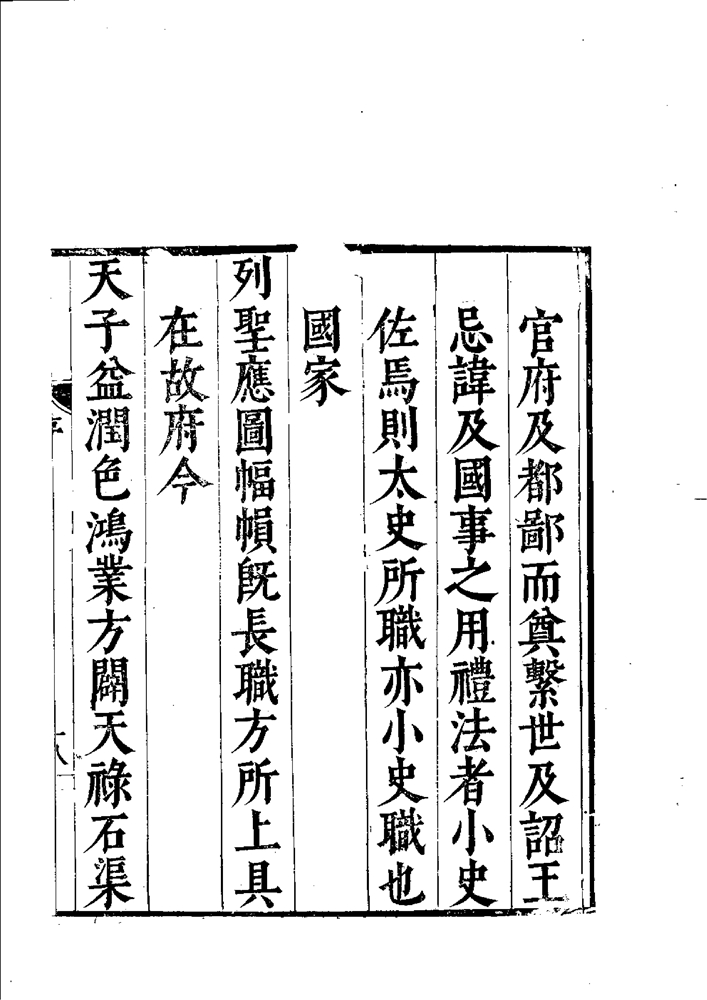 官府及都鄙而奠繫世及詔王
忌諱及國事之用禮法者小史
佐焉則太史所職亦小史職也
國家
列聖應圖幅幀旣長職方所上具
在故府今
天子益潤色鴻業方闢天祿石渠
序